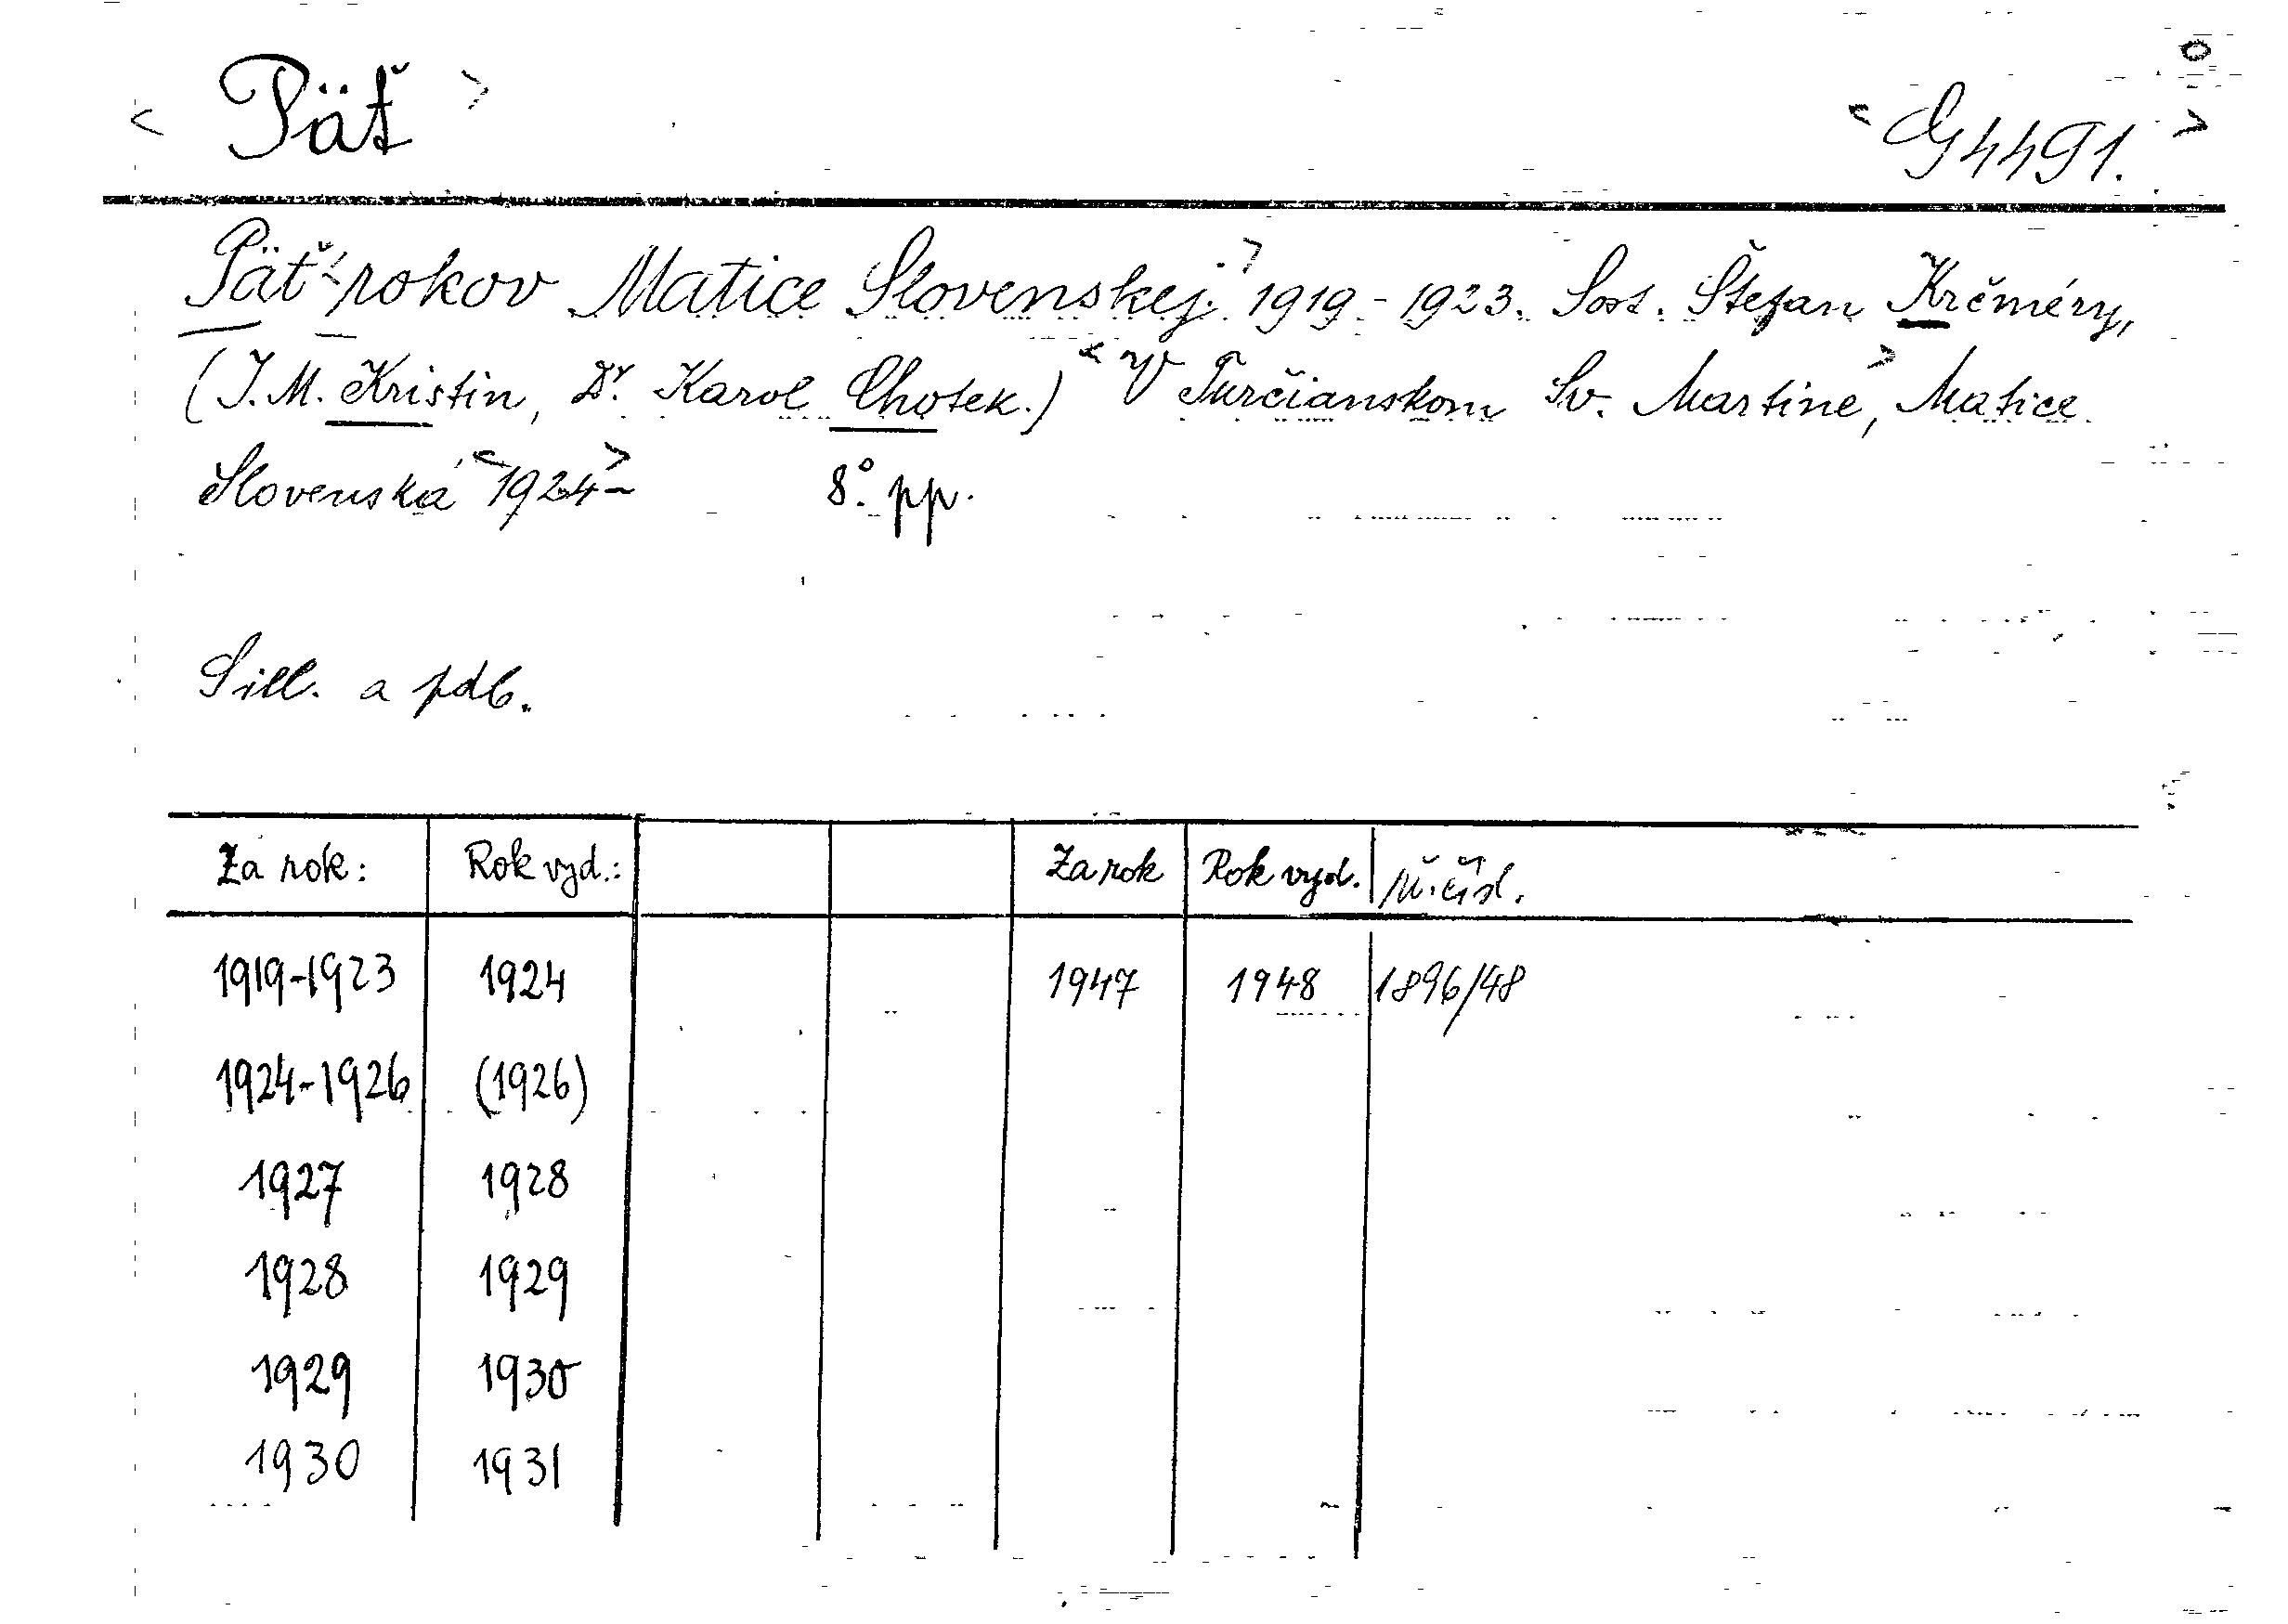 < Päť >
< G 4491. >
Päť rokov Matice Slovenskej. > 1919-1923. Sost. Štefan Krčméry,
(J. M. Kristin, Dr. Karol Chotek.) < V Turčianskom Sv. Martine, > Matice
Slovenská < 1924- > 8°. pp.
S ill. a pdb.
Za rok: Rok vyd.: Za rok Rok vyd.
1919-1923 1924 1947 1948 1896/48
1924-1926 (1926)
1927 1928
1928 1929
1929 1930
1930 1931